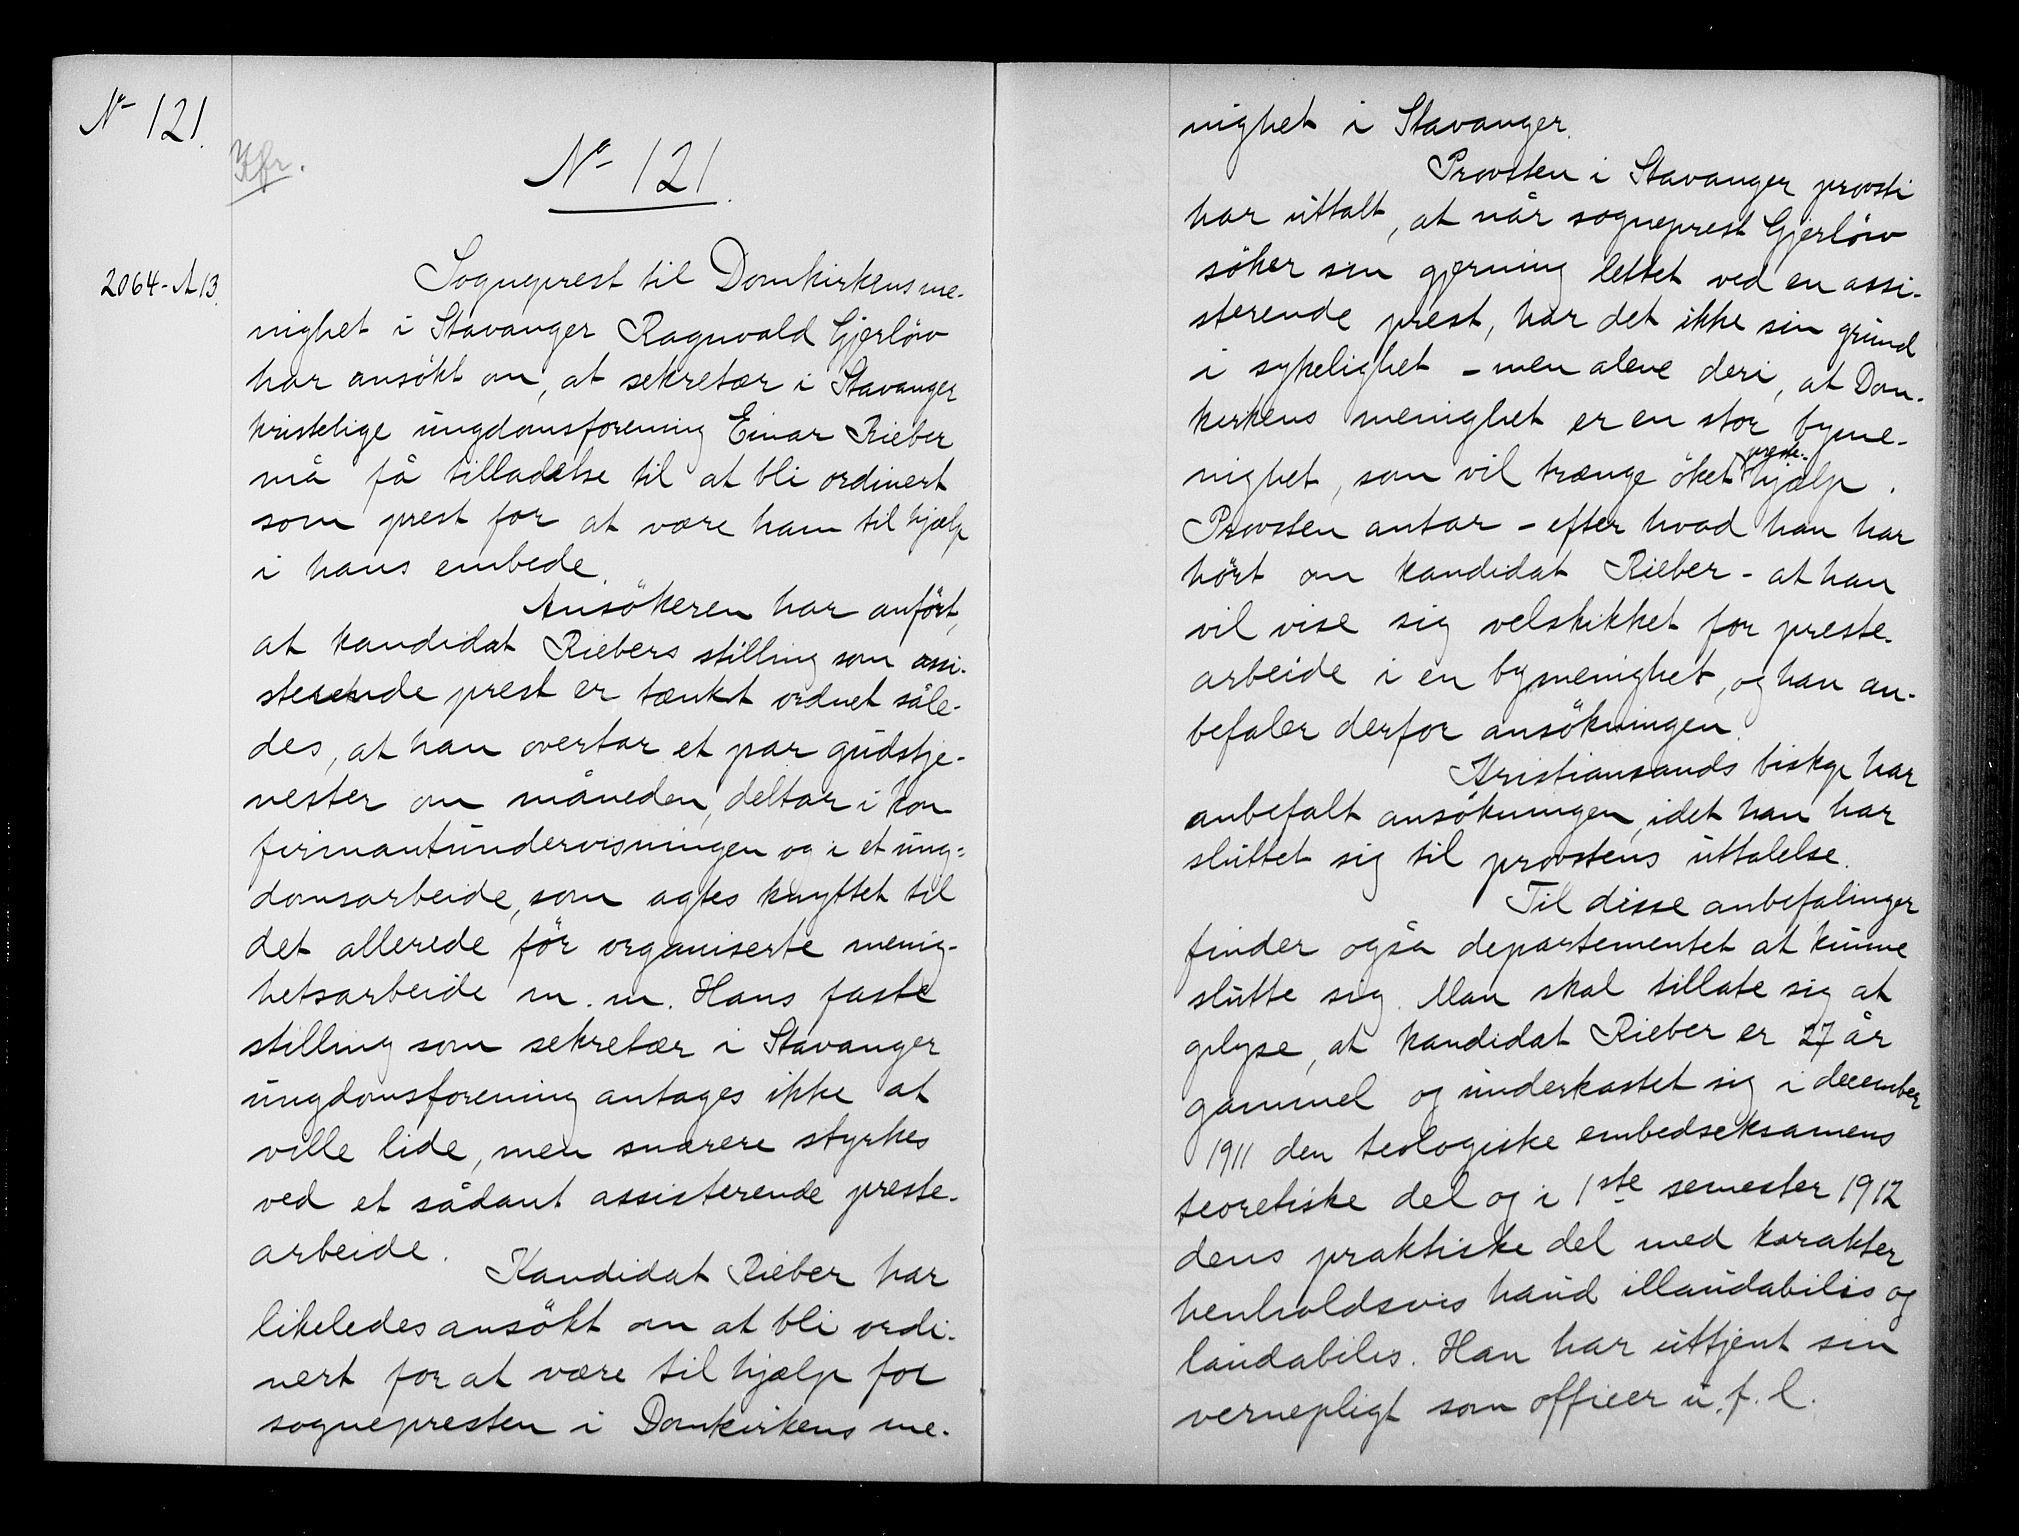 No 121.
Kfr.
No 121.
2064-A13.
Sogneprest til Domkirkens me-
nighet i Stavanger Ragnvald Gjerløw
har ansökt om, at sekretær i Stavanger
kristelige ungdomsforening Einar Rieber
må få tilladelse til at bli ordinert
som prest for at være ham til hjælp
i hans embede.
Ansökeren har anført,
at kandidat Riebers stilling som assi-
sterende prest er tænkt ordnet såle-
des, at han overtar et par gudstje-
nester om måneden, deltar i kon
firmantundervisningen og i et ung-
domsarbeide, som agtes knyttet til
det allerede før organiserte menig-
hetsarbeide m. m. Hans faste
stilling som sekretær i Stavanger
ungdomsforening antages ikke at
ville lide, men snarere styrkes
ved et sådant assisterende preste-
arbeide.
Kandidat Rieber har
likeledes ansökt om at bli ordi-
nert for at være til hjælp for
sognepresten i Domkirkens me-
nighet i Stavanger.
Provsten i Stavanger provsti
har uttalt, at når sogneprest Gjerløw
söker sin gjerning lettet ved en assi-
sterende prest, har det ikke sin grund
i sykelighet - men alene deri, at Dom-
kirkens menighet er en stor byme-
nighet, som vil trænge öket preste-hjælp.
Provsten antar - efter hvad han har
hørt om kandidat Rieber - at han
vil vise sig velskikket for preste-
arbeide i en bymenighet, og han an-
befaler derfor ansökningen.
Kristiansands biskop har
anbefalt ansökningen, idet han har
sluttet sig til provstens uttalelse.
Til disse anbefalinger
finder også departementet at kunne
slutte sig. Man skal tillate sig at
oplyse, at kandidat Rieber er 27 år
gammel og underkastet sig i december
1911 den teologiske embedseksamens
teoretiske del og i 1ste semester 1912
dens praktiske del med karakter
henholdsvis haud illaudabilis og
laudabilis. Han har uttjent sin
vernepligt som officer u. f. l.